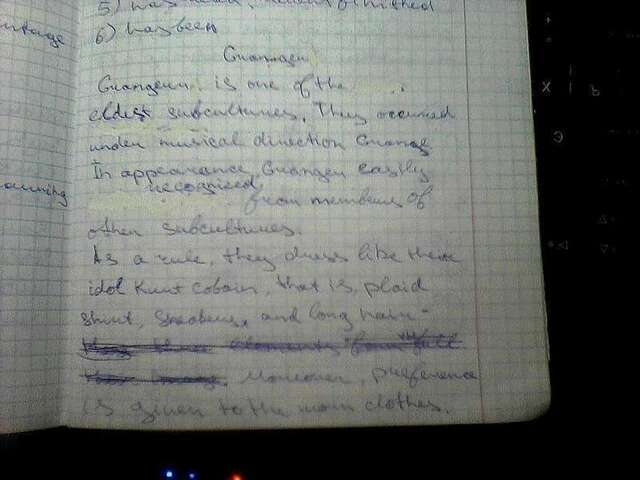 5) has read, haven't finished
6) has been
Grunger
Grunger is one of the
eldest subcultures. They occurred
under musical direction Grunge
In appearance, Grunger easily
recognized from members of
other subcultures.
As a rule, they dress like their
idol Kurt Cobain, that is, plaid
shirt, sneakers, and long hair.
Moreover, preference
is given to the worn clothes.
Х Ъ
Э